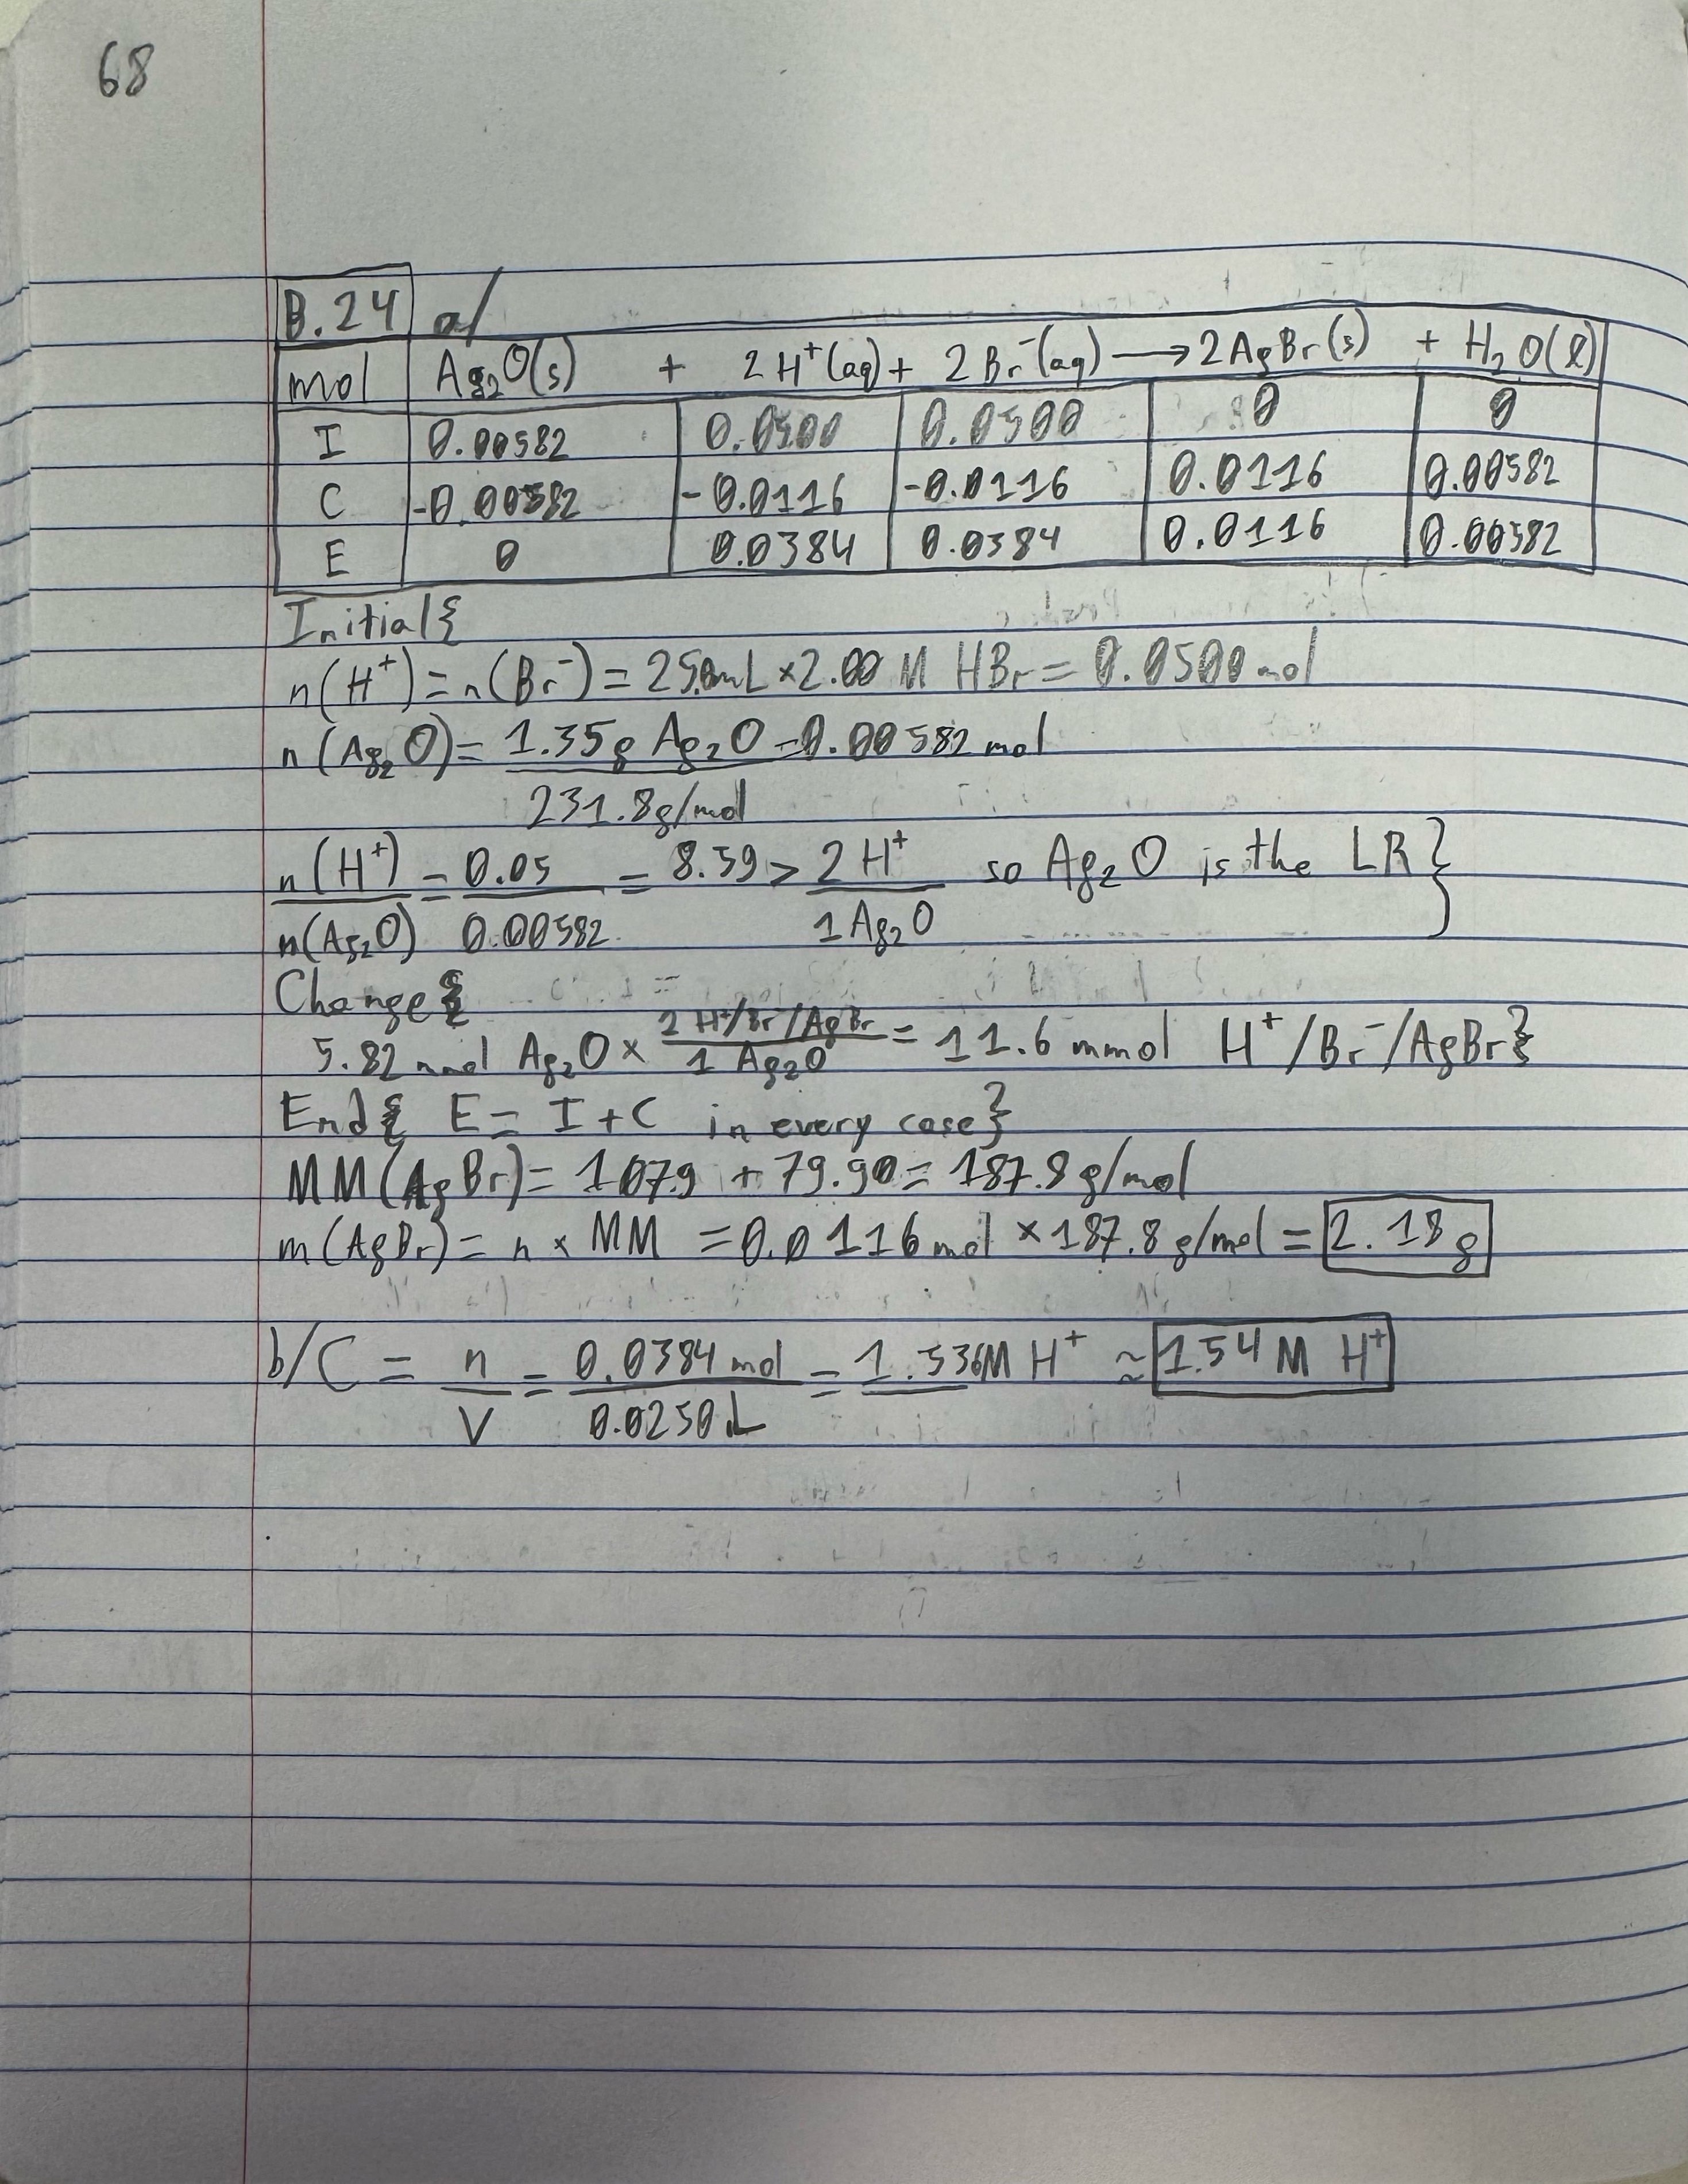 68
B.24 a/
mol Ag₂O(s) + 2H⁺(aq) + 2Br⁻(aq) ⟶ 2AgBr(s) + H₂O(l)
I 0.00582 0.0500 0.0500 0 0
C -0.00582 -0.0116 -0.0116 0.0116 0.00582
E 0 0.0384 0.0384 0.0116 0.00582
Initial{
n(H⁺)=n(Br⁻)=25.0mL×2.00 M HBr=0.0500mol
n(Ag₂O)=1.35g Ag₂O=0.00582 mol
231.8g/mol
n(H⁺) = 0.05 = 8.59 > 2H⁺ so Ag₂O is the LR}
n(Ag₂O) 0.00582 1Ag₂O
Change{
5.82 mmol Ag₂O × 2 H⁺/Br⁻/AgBr = 11.6 mmol H⁺/Br⁻/AgBr}
1 Ag₂O
End{ E = I + C in every case}
MM(AgBr)= 107.9 + 79.90= 187.8g/mol
m(AgBr)= n × MM = 0.0116mol × 187.8g/mol = 2.18g
b/C = n = 0.0384mol = 1.536M H⁺ ≈ 1.54M H⁺
V 0.0250L